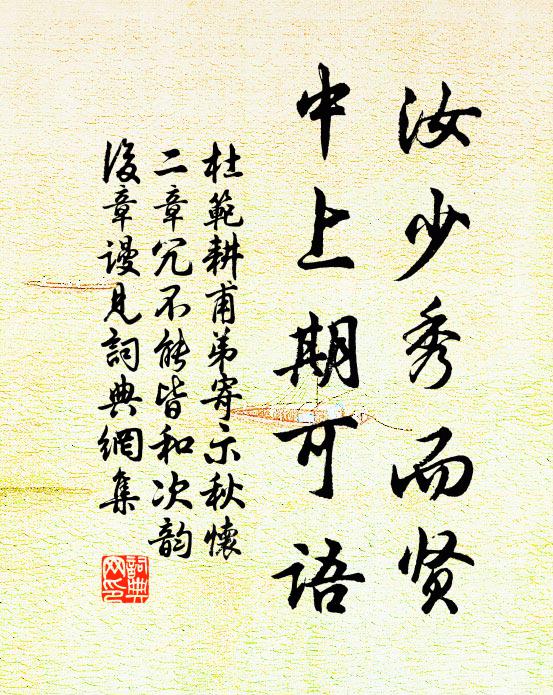 汝少秀而贤
中上期可語
杜範耕甫弟寄示秋懷
二章冗不能皆和次韵
後章谩見詞典網集
詞典網印